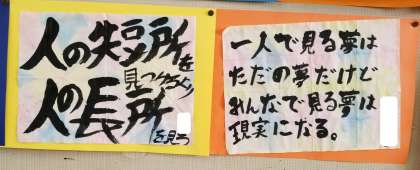 人の短所を
見つけるより
人の長所
を見る
一人で見る夢は
ただの夢だけど
みんなで見る夢は
現実になる。